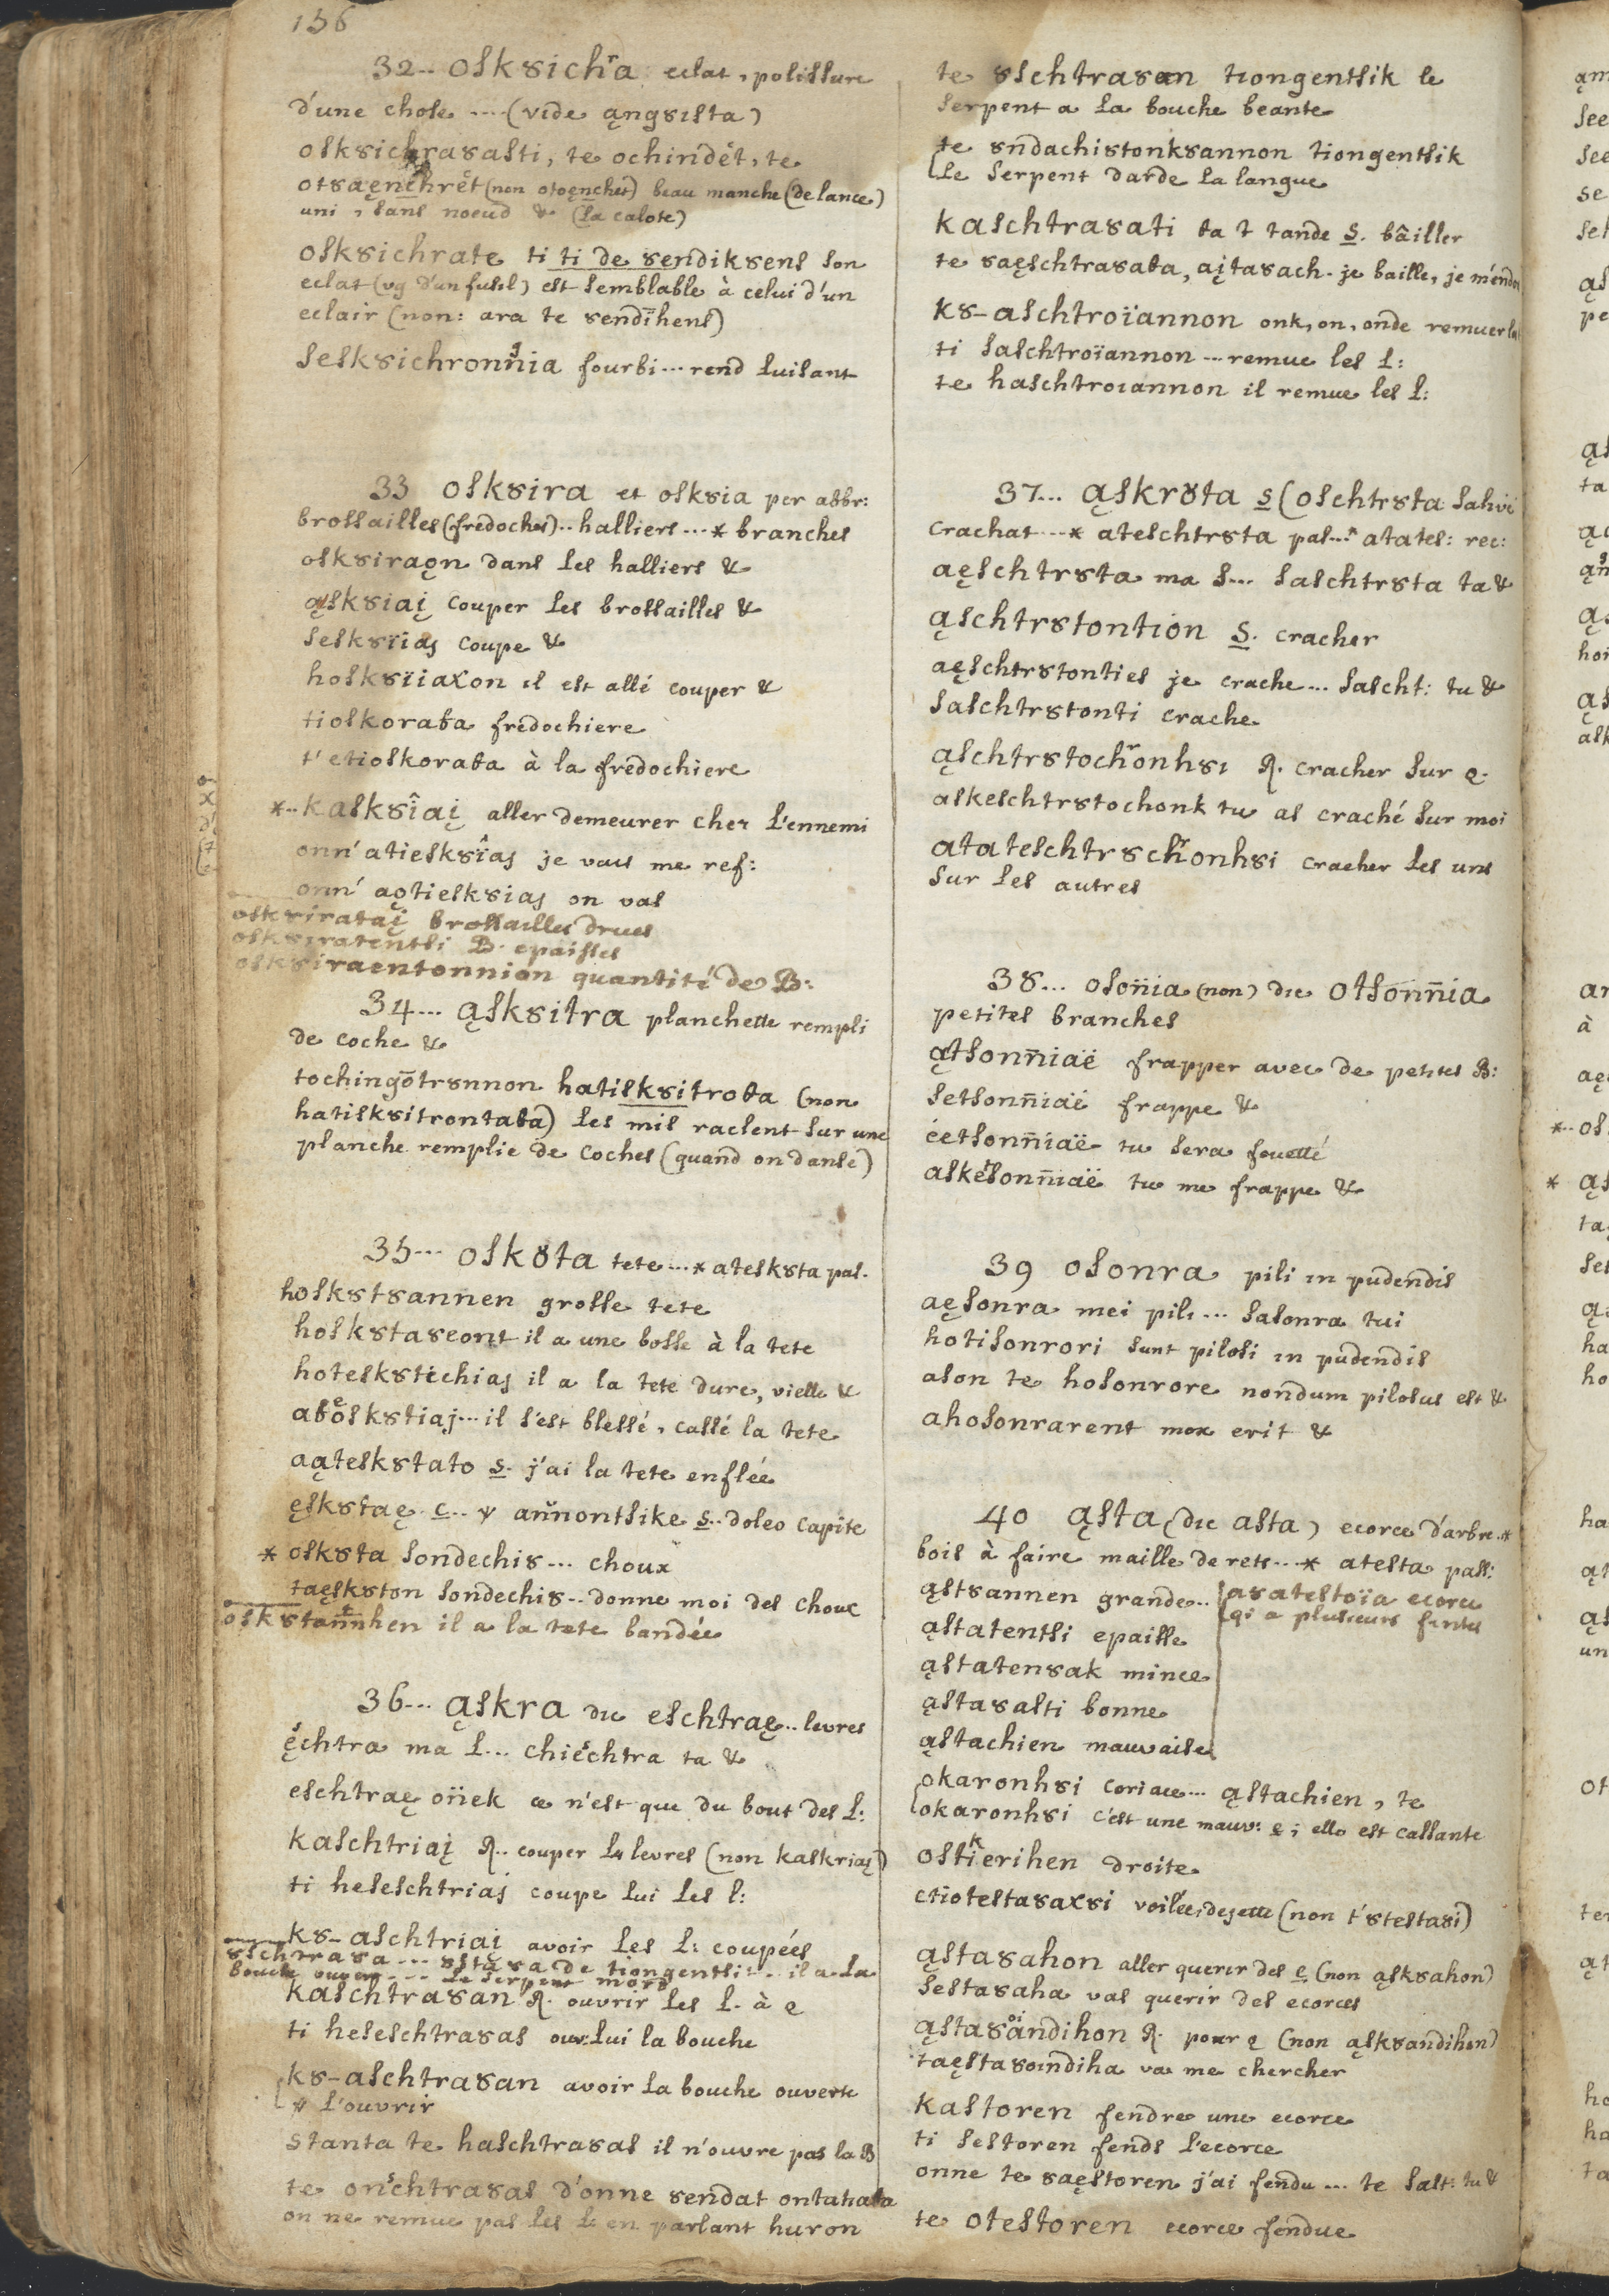 136
32.. oskȣichra eclat, polissure
d'une chose .... (vide ąngȣista)
oskȣichraȣasti, te ochindet, te
otsaęnchrét (non otoęnchet) beau manche (de lance)
uni, sans noeud & (la calote)
oskȣichrate ti ti de ȣendikȣens son
eclat (vg d'un fusil) est semblable à celui d'un
eclair (non: ara te ȣendihens)
seskȣichronnia fourbi... rend luisant
33 oskȣira et oskȣia per abbr:
brossailles (fredoches).. halliers ... * branches
oskȣiraǫn dans les halliers &
ąskȣiaį couper les brossailles &
seskȣïaȷ coupe &
hoskȣïiaxon il est allé couper &
tioskoraϑa fredochiere
t'etioskoraϑa à la fredochiere
*.. kaskȣîaį aller demeurer chez l'ennemi
onn'atieskȣîas je vais me ref:
onn'aǫtieskȣias on vas
oskȣirataį brossailles drues
oskȣiratentsi B. epaisses
oskȣiraentonnion quantité de B:
34.... ąskȣitra planchette rempli
de coche &
tochingōtrȣnnon hatiskȣitroϑa (non
hatiskȣitrontaϑa) les mis raclent sur une
planche remplie de coches (quand on danse)
35... oskȣta tete ... * ateskȣta pas.
hoskȣtȣannen grosse tete
hoskȣtaȣeont il a une bosse à la tete
hoteskȣtichias il a la tete dure, vielle &
aϑoskȣtiaj... il s'est blessé, cassé la tete
aąteskȣtato s. j'ai la tete enflée
ęskȣtaę c.. ѱ annontsike s.. doleo capite
* oskȣta sondechiȣ... choux
taęskȣton sondechiȣ.. donne moi des choux
oskȣtannhen il a la tete bandée
36... ąskra dic eschtraę.. levres
ęchtra ma l... chiechtra ta &
eschtraę oñek ce n'est que du bout des l:
kaschtriaį R.. couper les levres (non kaskriaį)
ti heseschtrias coupe lui les l:
kȣ_aschtriai avoir les l: coupées
ȣschtraȣa ... ȣstaȣa de tiongentsi... il a la
bouche ouverte ... le serpent mord
kaschtraȣan R. ouvrir les l. à ę
ti heseschtraȣas ouv: lui la bouche
kȣ_aschtraȣan avoir la bouche ouverte
ѱ l'ouvrir
stanta te haschtraȣas il n'ouvre pas la B
te onschtraȣas d'onne ȣendat ontatiaϑa
on ne remue pas les l: en parlant huron
te ȣschtraȣan tiongentsik le
serpent a la bouche beante
te ȣndachiȣtonkȣannon tiongentsik
le serpent darde la langue
kaschtraȣati ϑa t tande s. bâiller
te ȣaęschtraȣaϑa, aįtaȣach. je baille, je m'endor
kȣ_aschtroïannon onk, on, onde remuer la
ti saschtroïannon ... remue les l:
te haschtroiannon il remue les l:
37... ąskrȣta s (oschtrȣta
crachat ... * ateschtrȣta pas... atates: rec:
aęschtrȣta ma s... saschtrȣta ta &
ąschtrȣtontion s. cracher
aęschtrȣtonties je crache ... sascht: tu &
saschtrȣtonti crache
ąschtrȣtochronhȣi R. cracher sur ę.
askeschtrȣtochonk tu as craché sur moi
atateschtrȣchronhȣi cracher les uns
sur les autres
38... osoñia (non) dic otsonñia
petites branches
ątsonñiaë frapper avec de petites B:
setsonñiaë frappe &
éetsonñiaë tu sera fouetté
askesonñiaë tu me frappe &
39 osonra pili in pudendis
aęsonra mei pili ... sasonra tui
hotisonrori sunt pilosi in pudendis
ason te hosonrore nondum pilosus est &
ahosonrarent mox erit &
40 ąsta (dic asta) ecorce d'arbre.*
bois à faire maille de rets ... * atesta pass:
ąstȣannen grande.. aȣatestoïa ecorce
qi a plusieurs fentes
ąstatentsi epaisse
ąstatenȣak mince
ąstaȣasti bonne
ąstachien mauvaise
okaronhȣi coriace ... ąstachien, te
okaronhȣi c'est une mauv: e; elle est cassante
ostikerihen droite
ctiotestaȣaxȣi voilée, dejettée (non t'ȣtestaȣi)
ąstaȣahon aller querir des e (non ąskȣahon)
sestaȣaha vas querir des ecorces
ąstaȣandihon R. pour ę (non ąskȣandihon)
taęstaȣoindiha va me chercher
kastoren fendre une ecorce
ti sestoren fends l'ecorce
onne te ȣaęstoren j'ai fendu ... te sast: tu &
te otestoren ecorce fendue